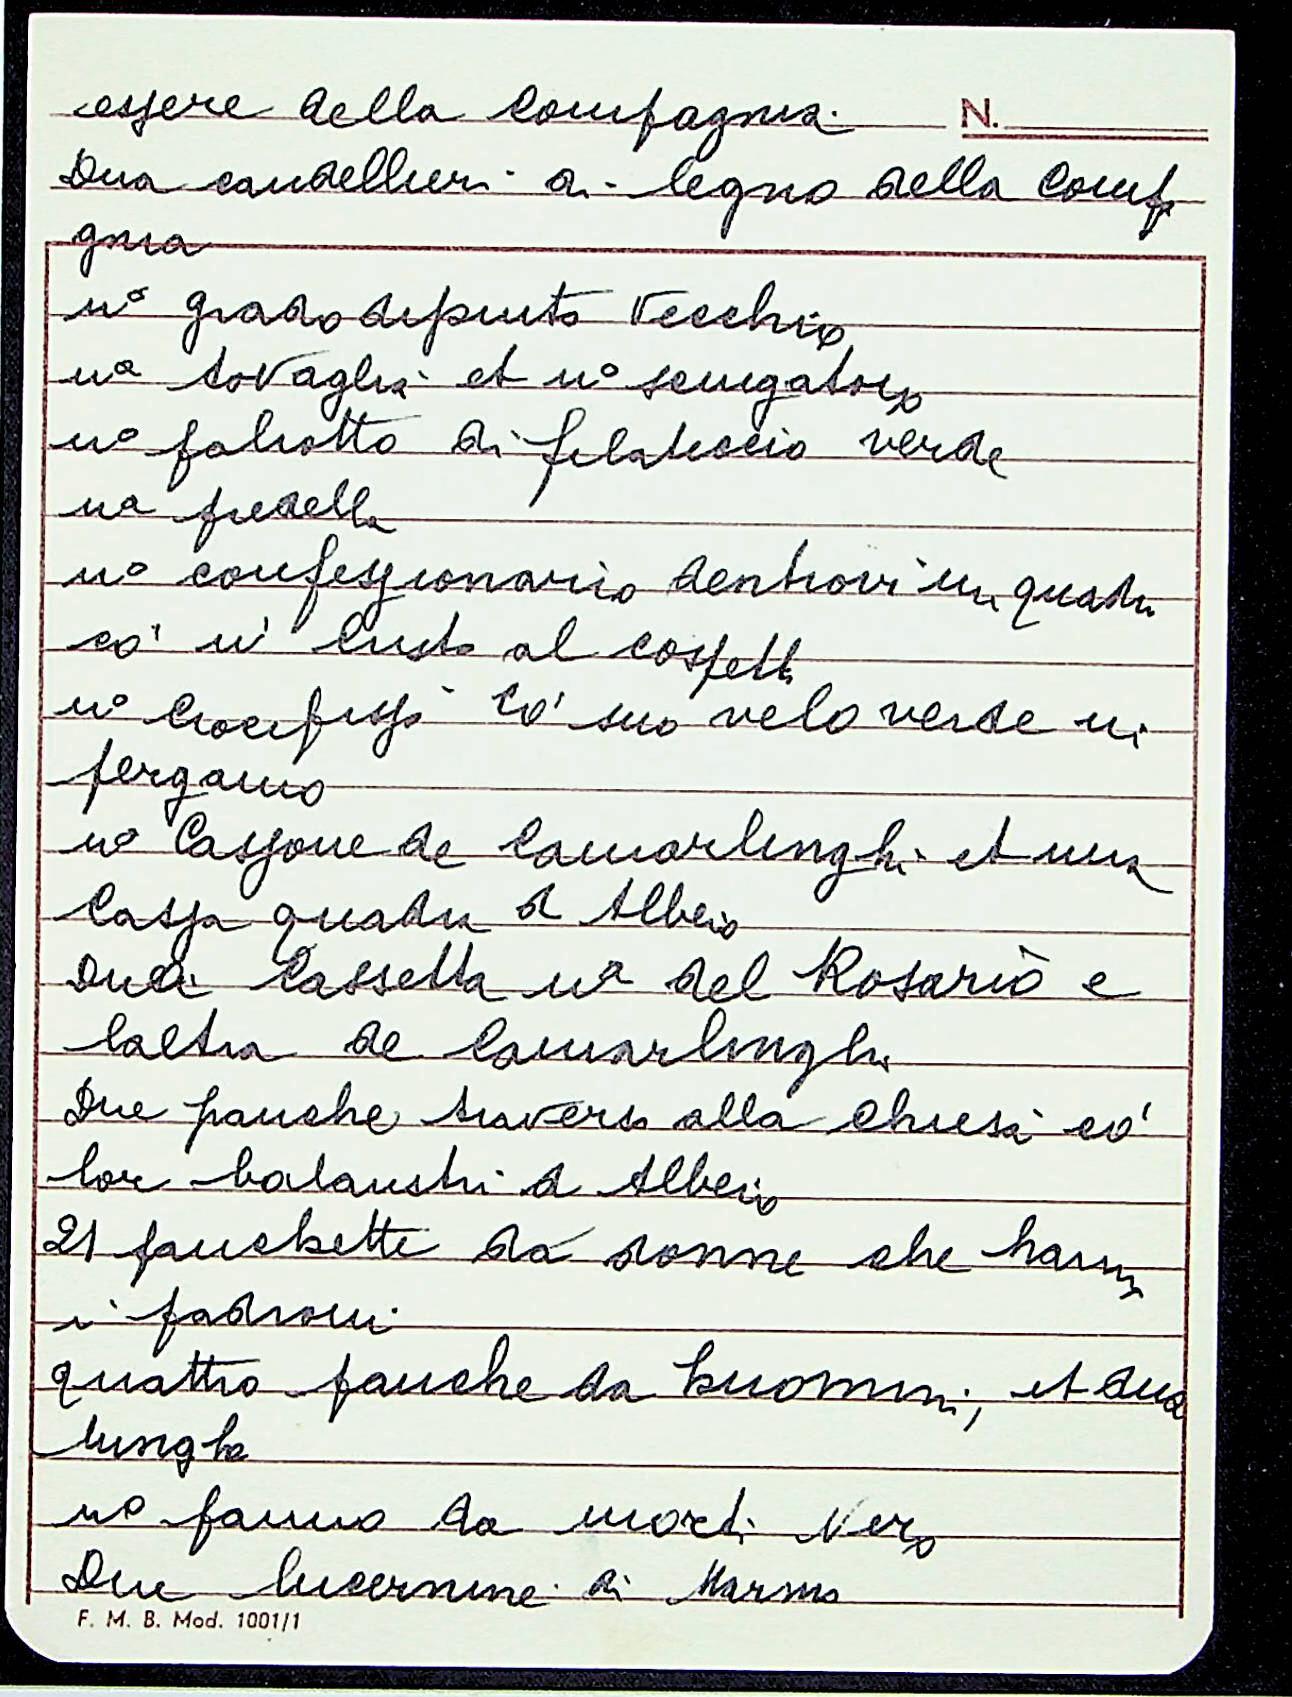 essere della Compagnia.
N.
Dua candellieri di legno della Comp
gnia
nº grado dipinto Vecchio
nª tovaglia et nº sciugatoio
nº paliotto di filaticcio verde
nª predella
nº confessionario dentrovi un quadro
co' n' Cristo al cospetto
nº Crocifisso co' suo velo verde in
pergamo
nº Cassone de Camarlinghi et una
Cassa quadra d Albero
Dua Cassetta nª del Rosario e
laltra de Camarlinghi
Due panche traverso alla Chiesa co'
lor balaustri d Albero
21 panchette da donne che hanno
i padroni
quattro panche da huomini, et dua
lunghe
nº panno da morti Nero
Due lucernine di Marmo
F. M. B. Mod. 1001/1